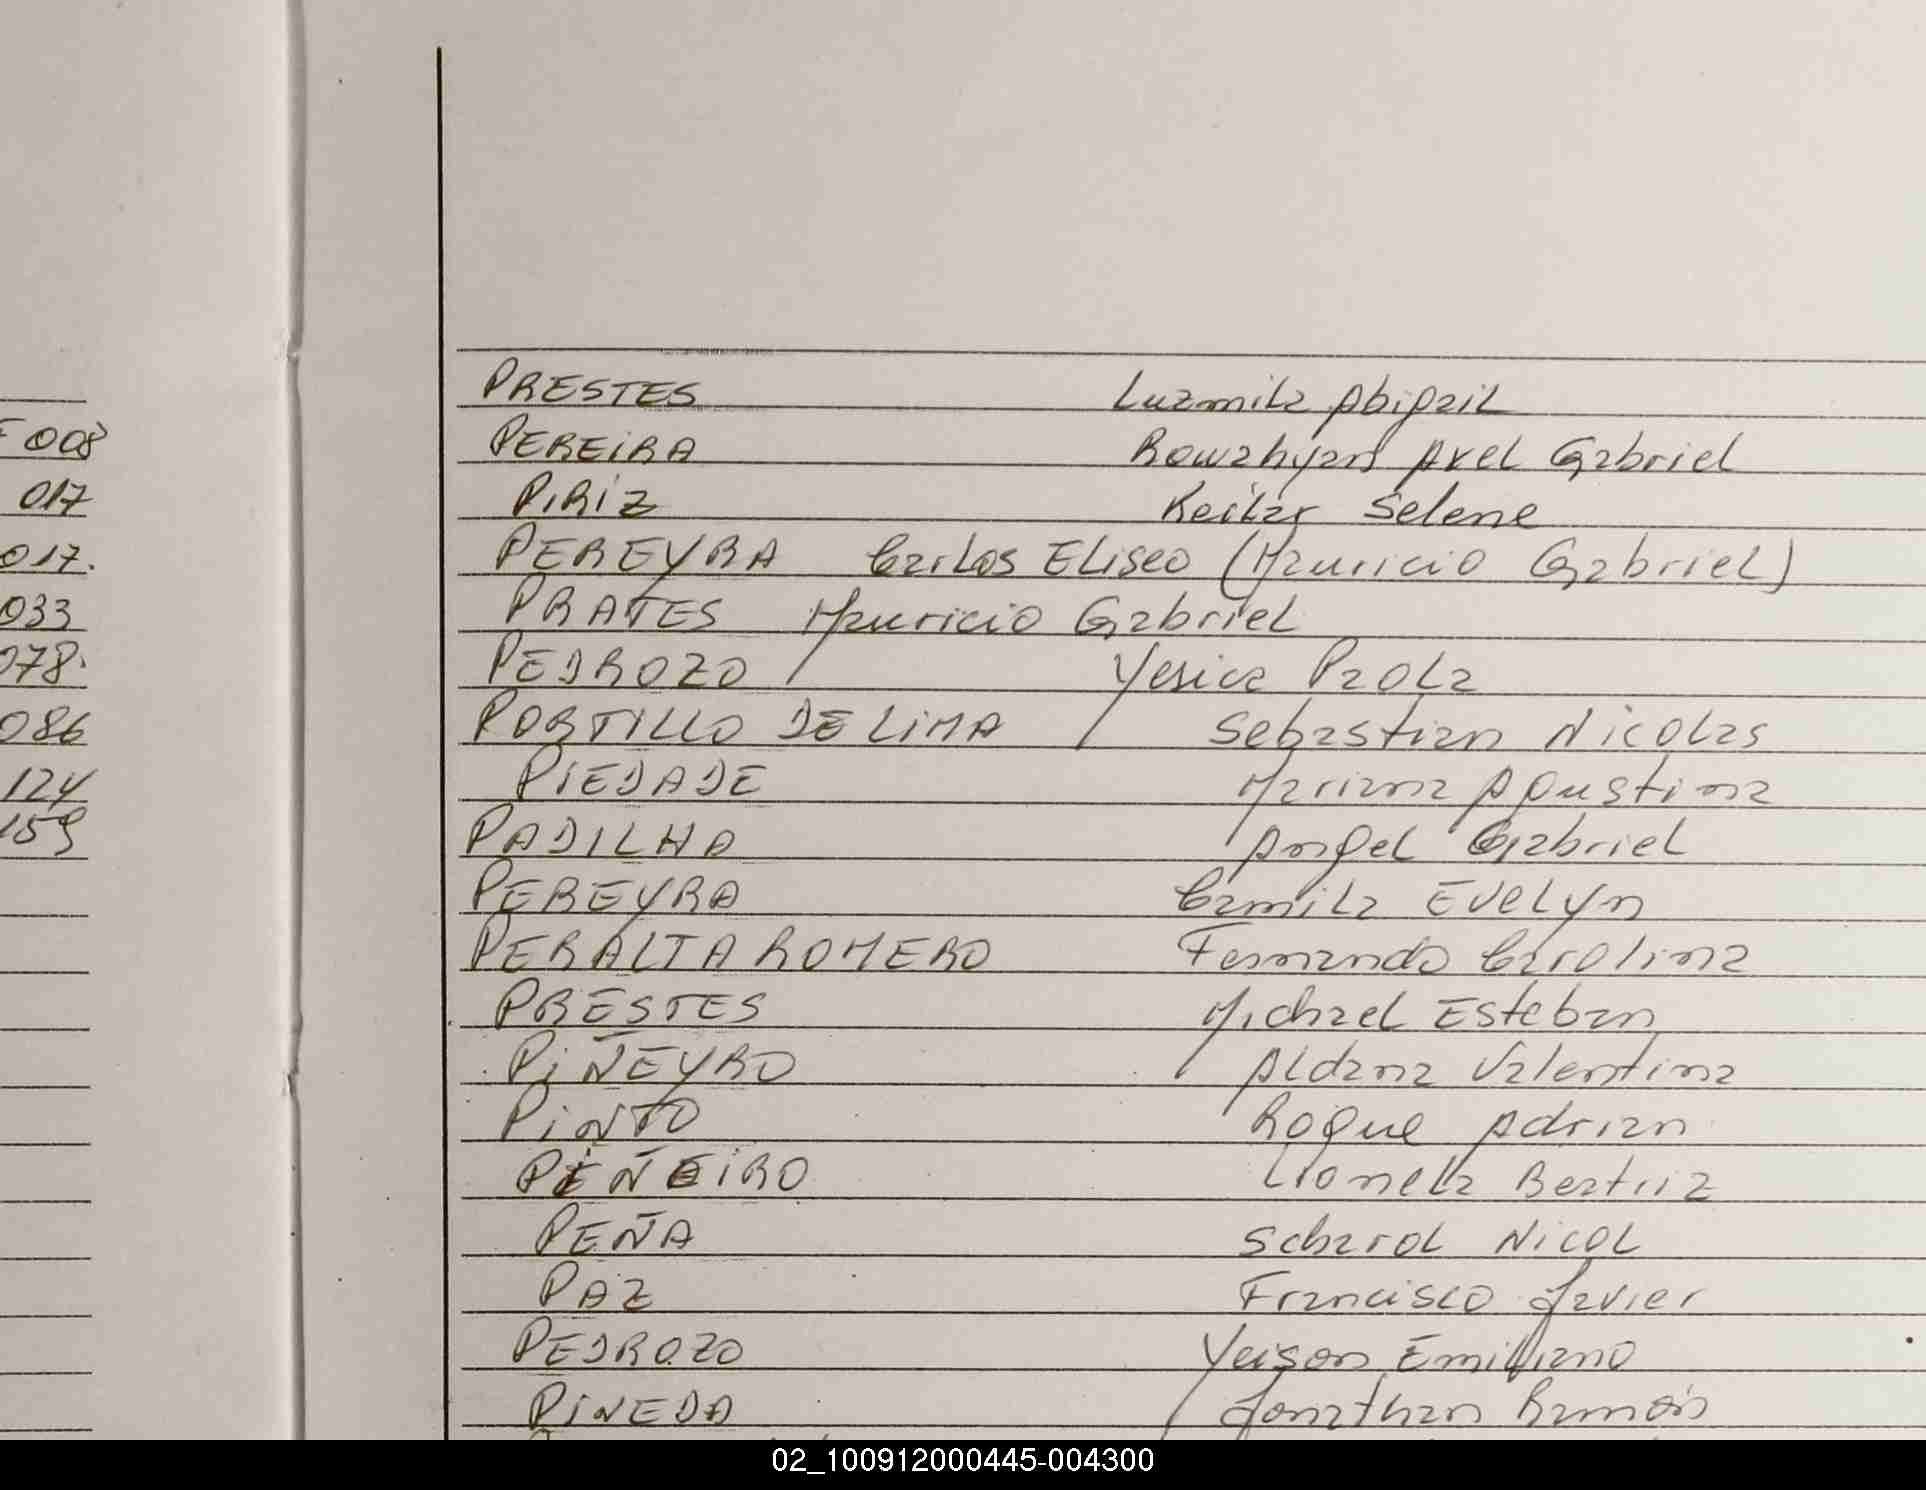 008
017
017.
033
078.
086
124
159
PRESTES Luzmila Abigail
PEREiRA Rowahyan Axel Gabriel
PiRiZ Keilar Selene
PEREYRA Carlos Eliseo (Mauricio Gabriel)
PRATES Mauricio Gabriel
PEDROZO Yesica Paola
PORTILLO DE LiMA Sebastian Nicolas
PiEDADE Mariana Agustina
PADILHA Angel Gabriel
PEREYRA Camila Evelyn
PERALTA ROMERO Fernando Carolina
PRESTES Michael Esteban
PiÑEYRO Aldana Valentina
PiNTO Roque Adrian
PiÑEiRO Lionela Beatriz
PEÑA Scharol Nicol
PAZ Francisco Javier
PEDROZO Yeison Emiliano
PiNEDA Jonathan Ramón
02_100912000445-004300